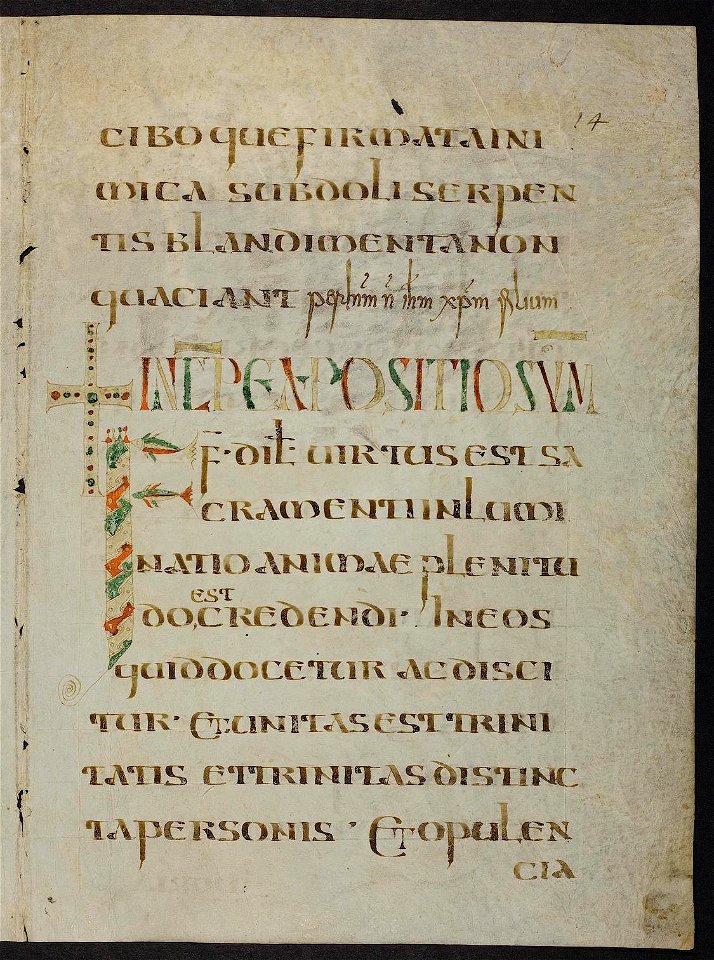 14
CIBOQUE FIRMATA INI
MICA SUBDOLI SERPEN
TIS BLANDIMENTA NON
QUACIANT per dnm n ihm xpm filium
INCP EXPOSITIO SVM
F·DIC UIRTUS EST SA
CRAMENTI INLUMI
NATIO ANIMAE PLENITU
EST
DO, CREDENDI· IN EOS
QUID DOCETUR AC DISCI
TUR· ET UNITAS EST TRINI
TATIS ET TRINITAS DISTINC
TA PERSONIS · ET OPULEN
CIA